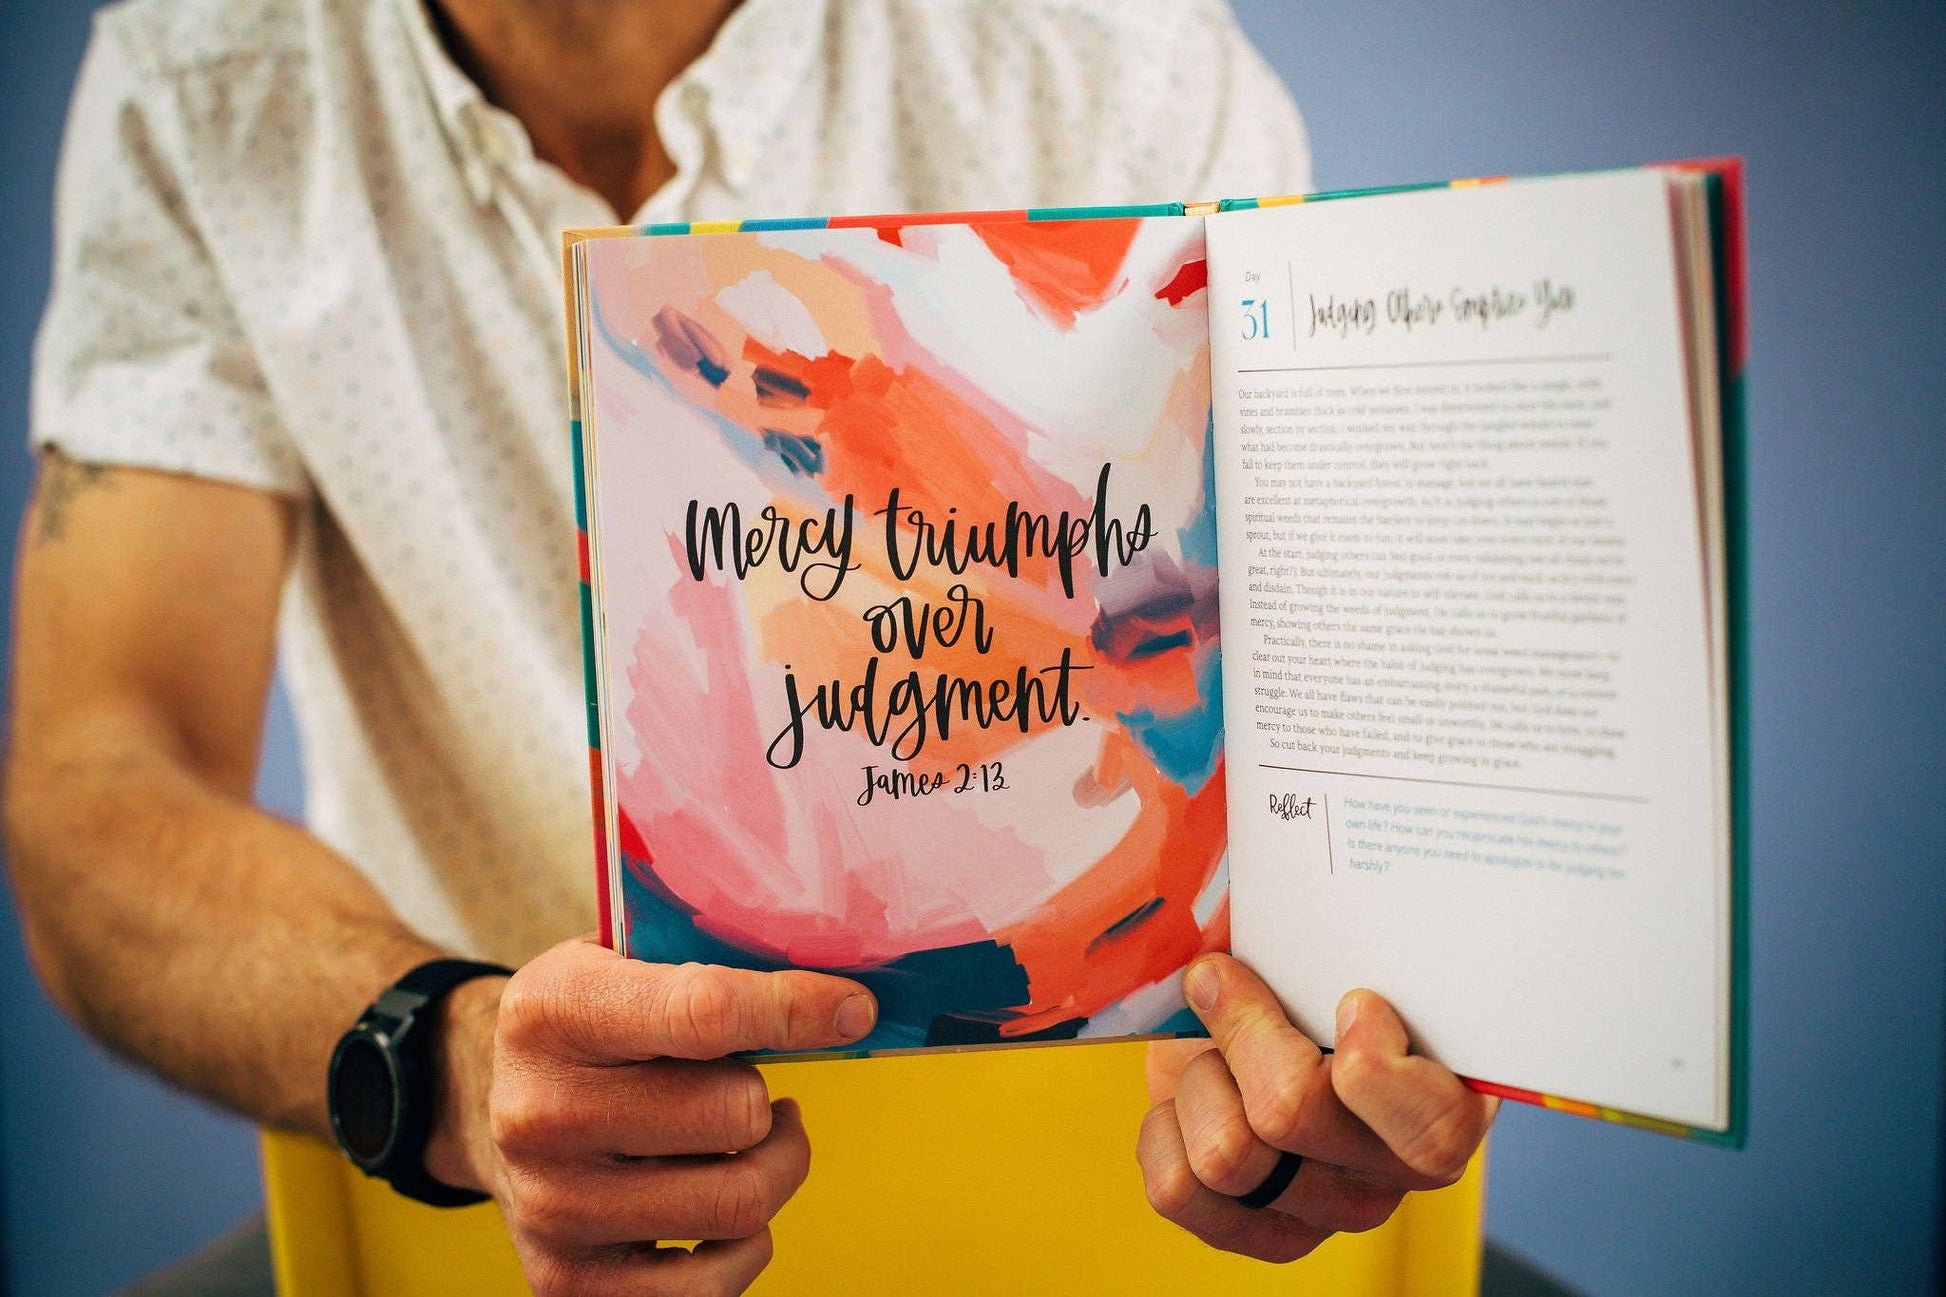 Mercy triumphs
over
judgment.
James 2:13
Day
31
Judging Others Empties You
Our backyard is full of trees. When we first moved in, it looked like a jungle, with
vines and brambles thick as
slowly, section by section, I worked my way through the tangled
what had become drastically overgrown. But here's the thing about weeds: If you
fail to keep them under control, they will grow right back.
You may not have a backyard forest to manage, but we all have
are excellent at metaphorical overgrowth. Such is judging others
spiritual weeds that
sprout, but if we give it room to run, it will
At the start, judging others can feel good or even
great, right?). But ultimately, our judgments
and disdain. Though it is in our nature to
Instead of growing the weeds of judgment, He calls us to grow fruitful gardens of
mercy, showing others the same grace He has shown us.
Practically, there is no shame in asking God for some weed management: to
clear out your heart where the habit of judging has overgrown.
in mind that everyone has an embarrassing story, a shameful past, or a current
struggle. We all have flaws that can be easily pointed out, but God does not
encourage us to make others feel small or unworthy. He calls us to
mercy to those who have failed, and to give grace to those who are struggling.
So cut back your judgments and keep growing in grace.
Reflect
How have you seen or experienced God's mercy in your
own life? How can you reciprocate His mercy to others?
Is there anyone you need to apologize to for judging too
harshly?